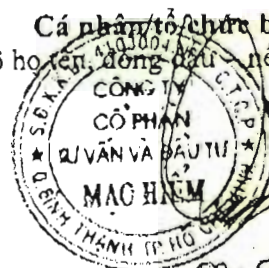 Cá nhân/tổ chức b
họ tên, đóng dấu - nế
CÔNG TY
CỔ PHẦN
TƯ VẤN VÀ ĐẦU TƯ
MẠO HIỂM
S.Đ.K.K.D
C.T.C.P
★ Q.BÌNH THẠNH TP.HỒ CHÍ MINH ★